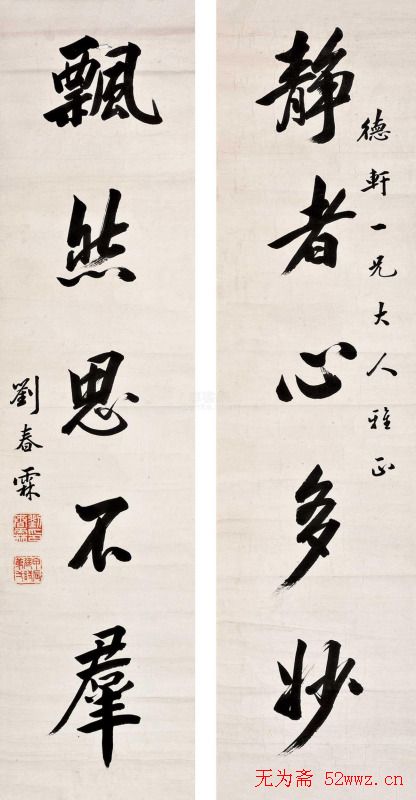 德軒一兄大人雅正
靜者心多妙
飄然思不羣
劉春霖
无为斋 52wwz.cn